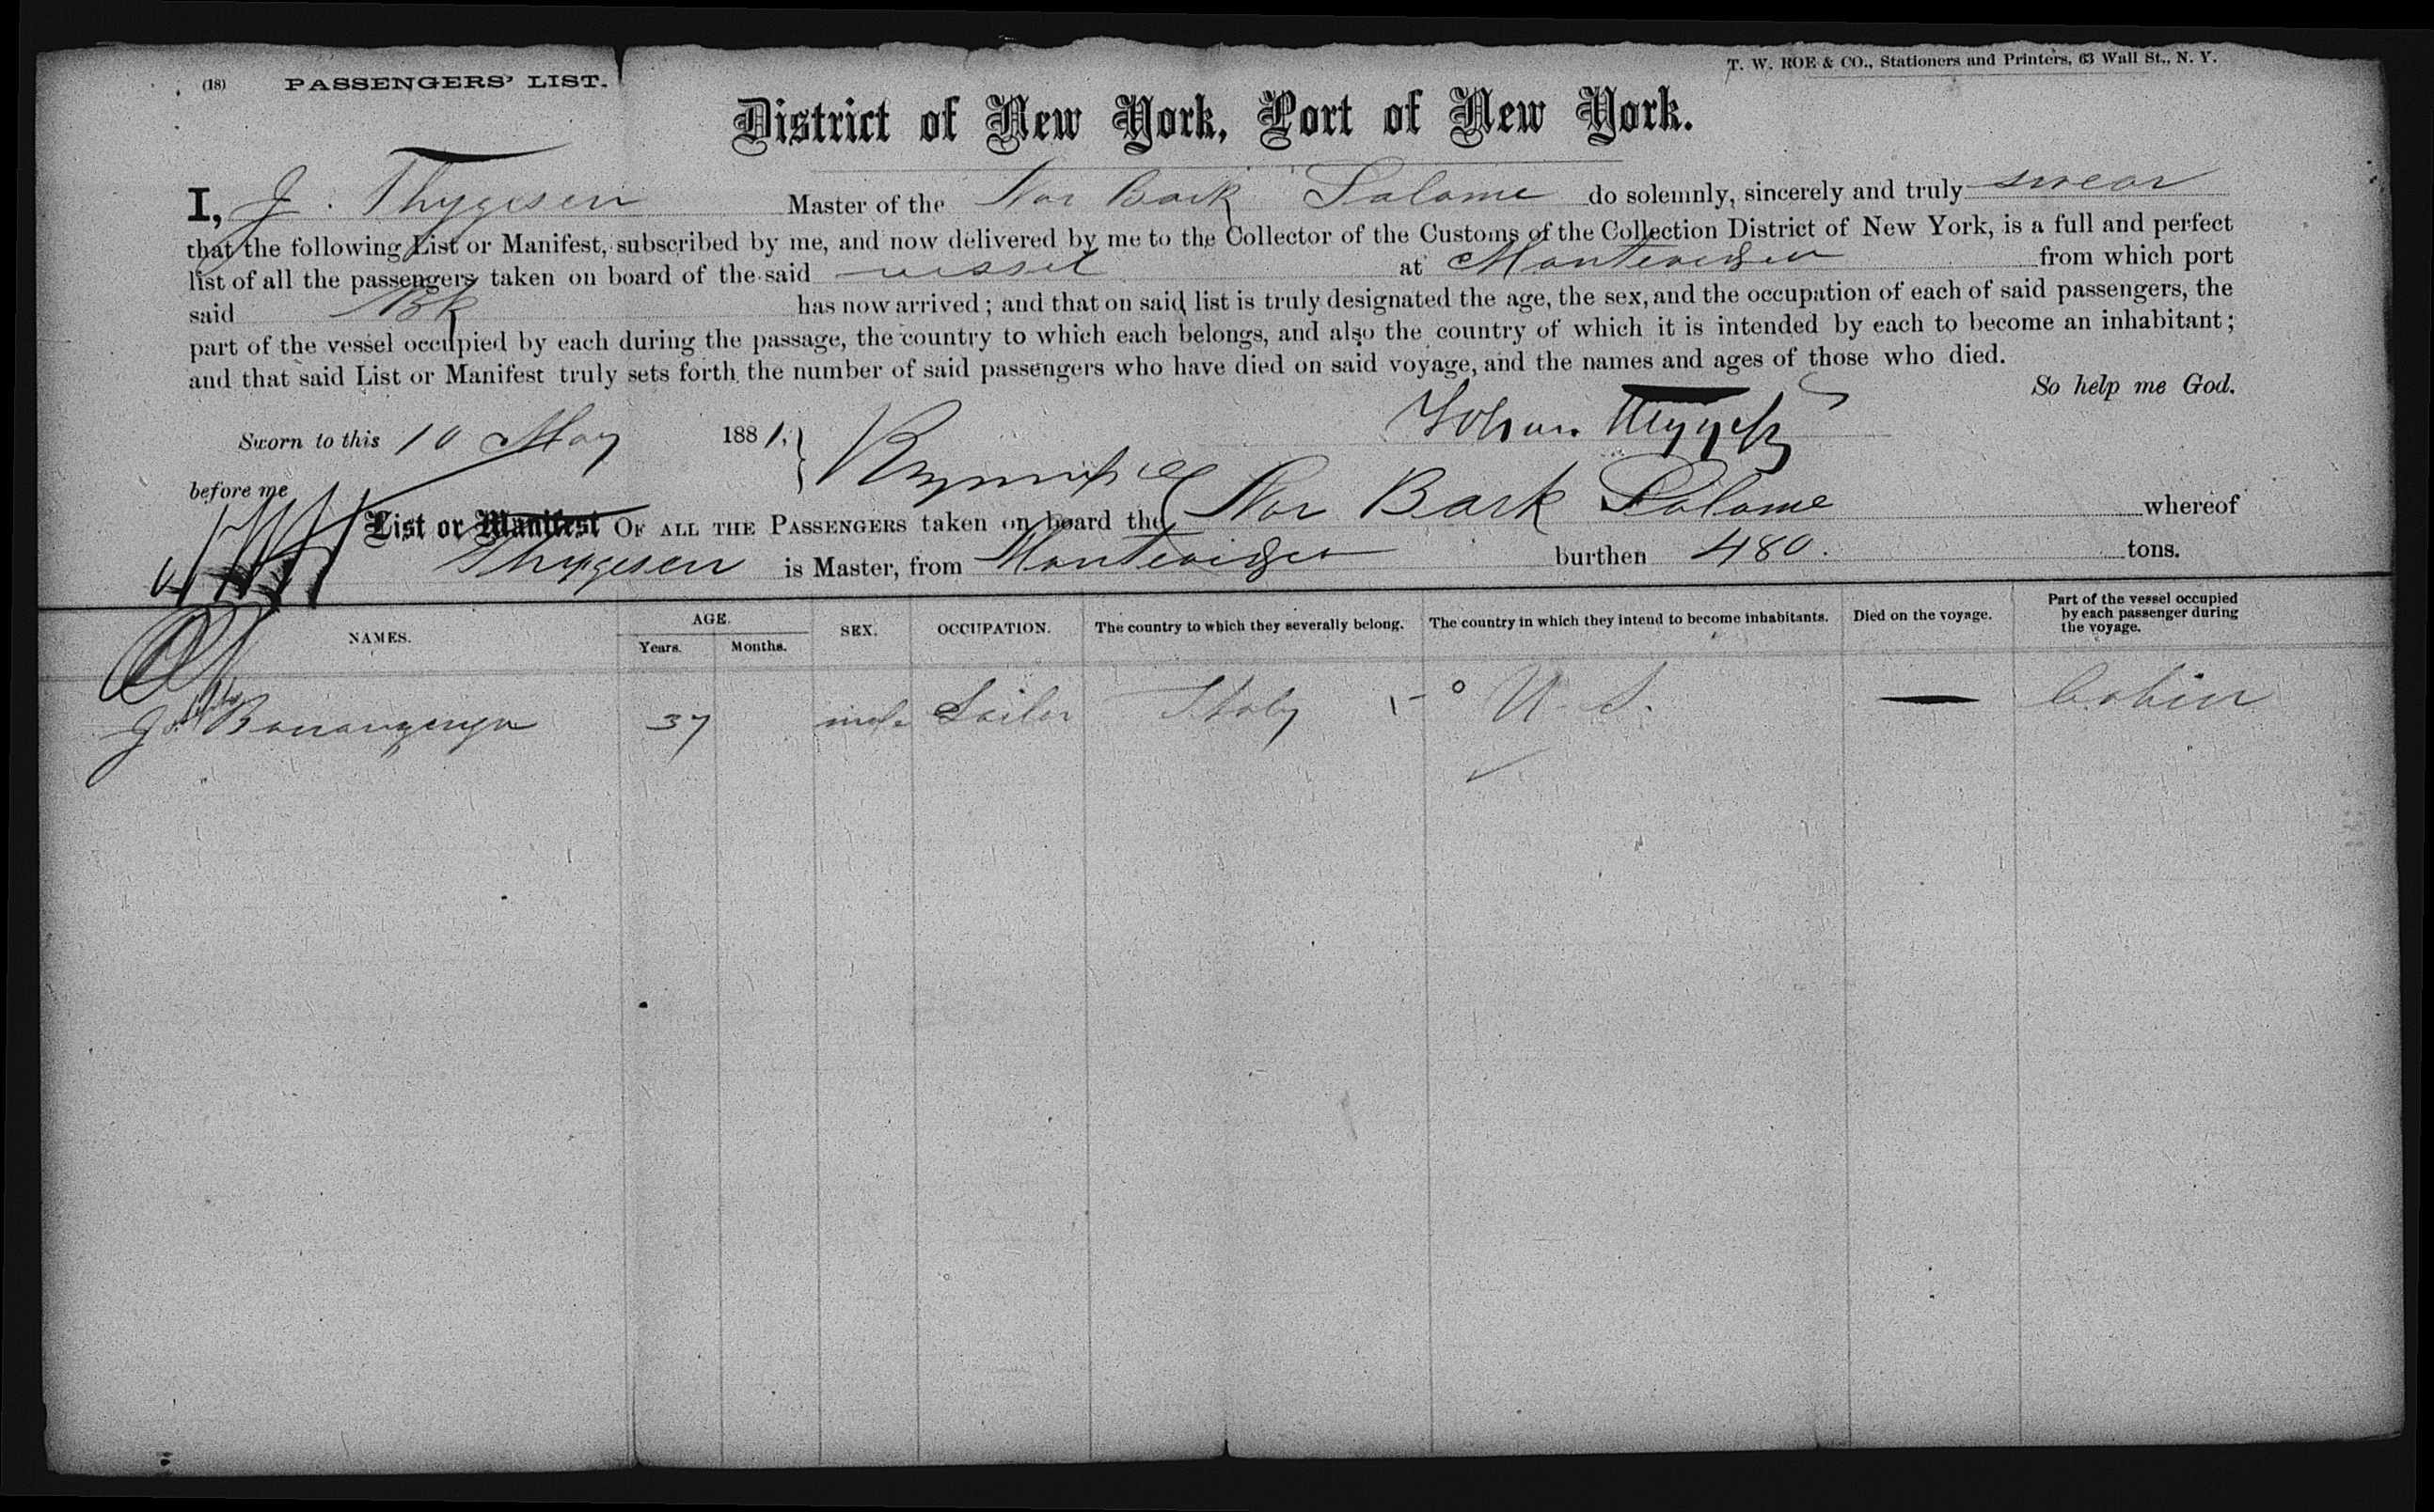 (18) PASSENGERS' LIST.
T. W. ROE & CO., Stationers and Printers, 63 Wall St., N. Y.
District of New York, Port of New York.
I, J. Thygesen Master of the Nor Bark Salome do solemnly, sincerely and truly swear
that the following List or Manifest, subscribed by me, and now delivered by me to the Collector of the Customs of the Collection District of New York, is a full and perfect
list of all the passengers taken on board of the said vessel at Montevideo from which port
said Bk has now arrived; and that on said list is truly designated the age, the sex, and the occupation of each of said passengers, the
part of the vessel occupied by each during the passage, the country to which each belongs, and also the country of which it is intended by each to become an inhabitant;
and that said List or Manifest truly sets forth the number of said passengers who have died on said voyage, and the names and ages of those who died.
So help me God.
Sworn to this 10 May 1881, Johan
before me
List or Manifest OF ALL THE PASSENGERS taken on board the Nor Bark Salome whereof
Thygesen is Master, from Montevideo burthen 480. tons.
NAMES. AGE. Years. Months. SEX. OCCUPATION. The country to which they severally belong. The country in which they intend to become inhabitants. Died on the voyage. Part of the vessel occupied by each passenger during the voyage.
37 male Sailor Italy U. S. — Cabin